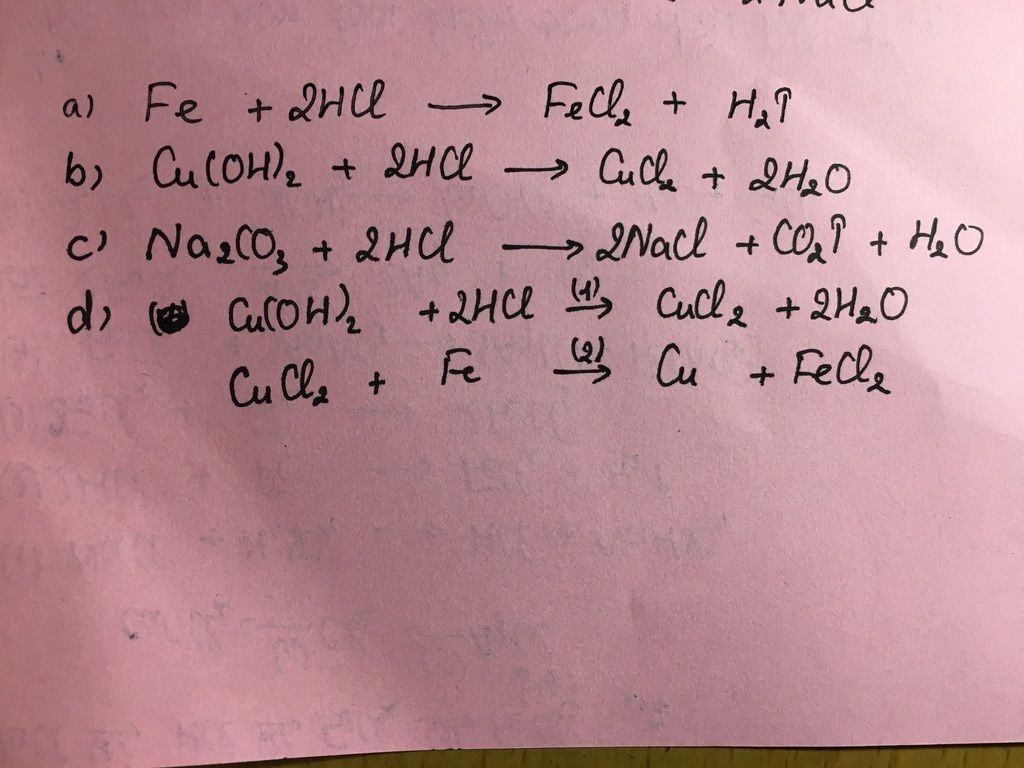 a) Fe + 2HCl → FeCl₂ + H₂↑
b) Cu(OH)₂ + 2HCl → CuCl₂ + 2H₂O
c) Na₂CO₃ + 2HCl → 2NaCl + CO₂↑ + H₂O
d) Cu(OH)₂ + 2HCl (1)→ CuCl₂ + 2H₂O
CuCl₂ + Fe (2)→ Cu + FeCl₂